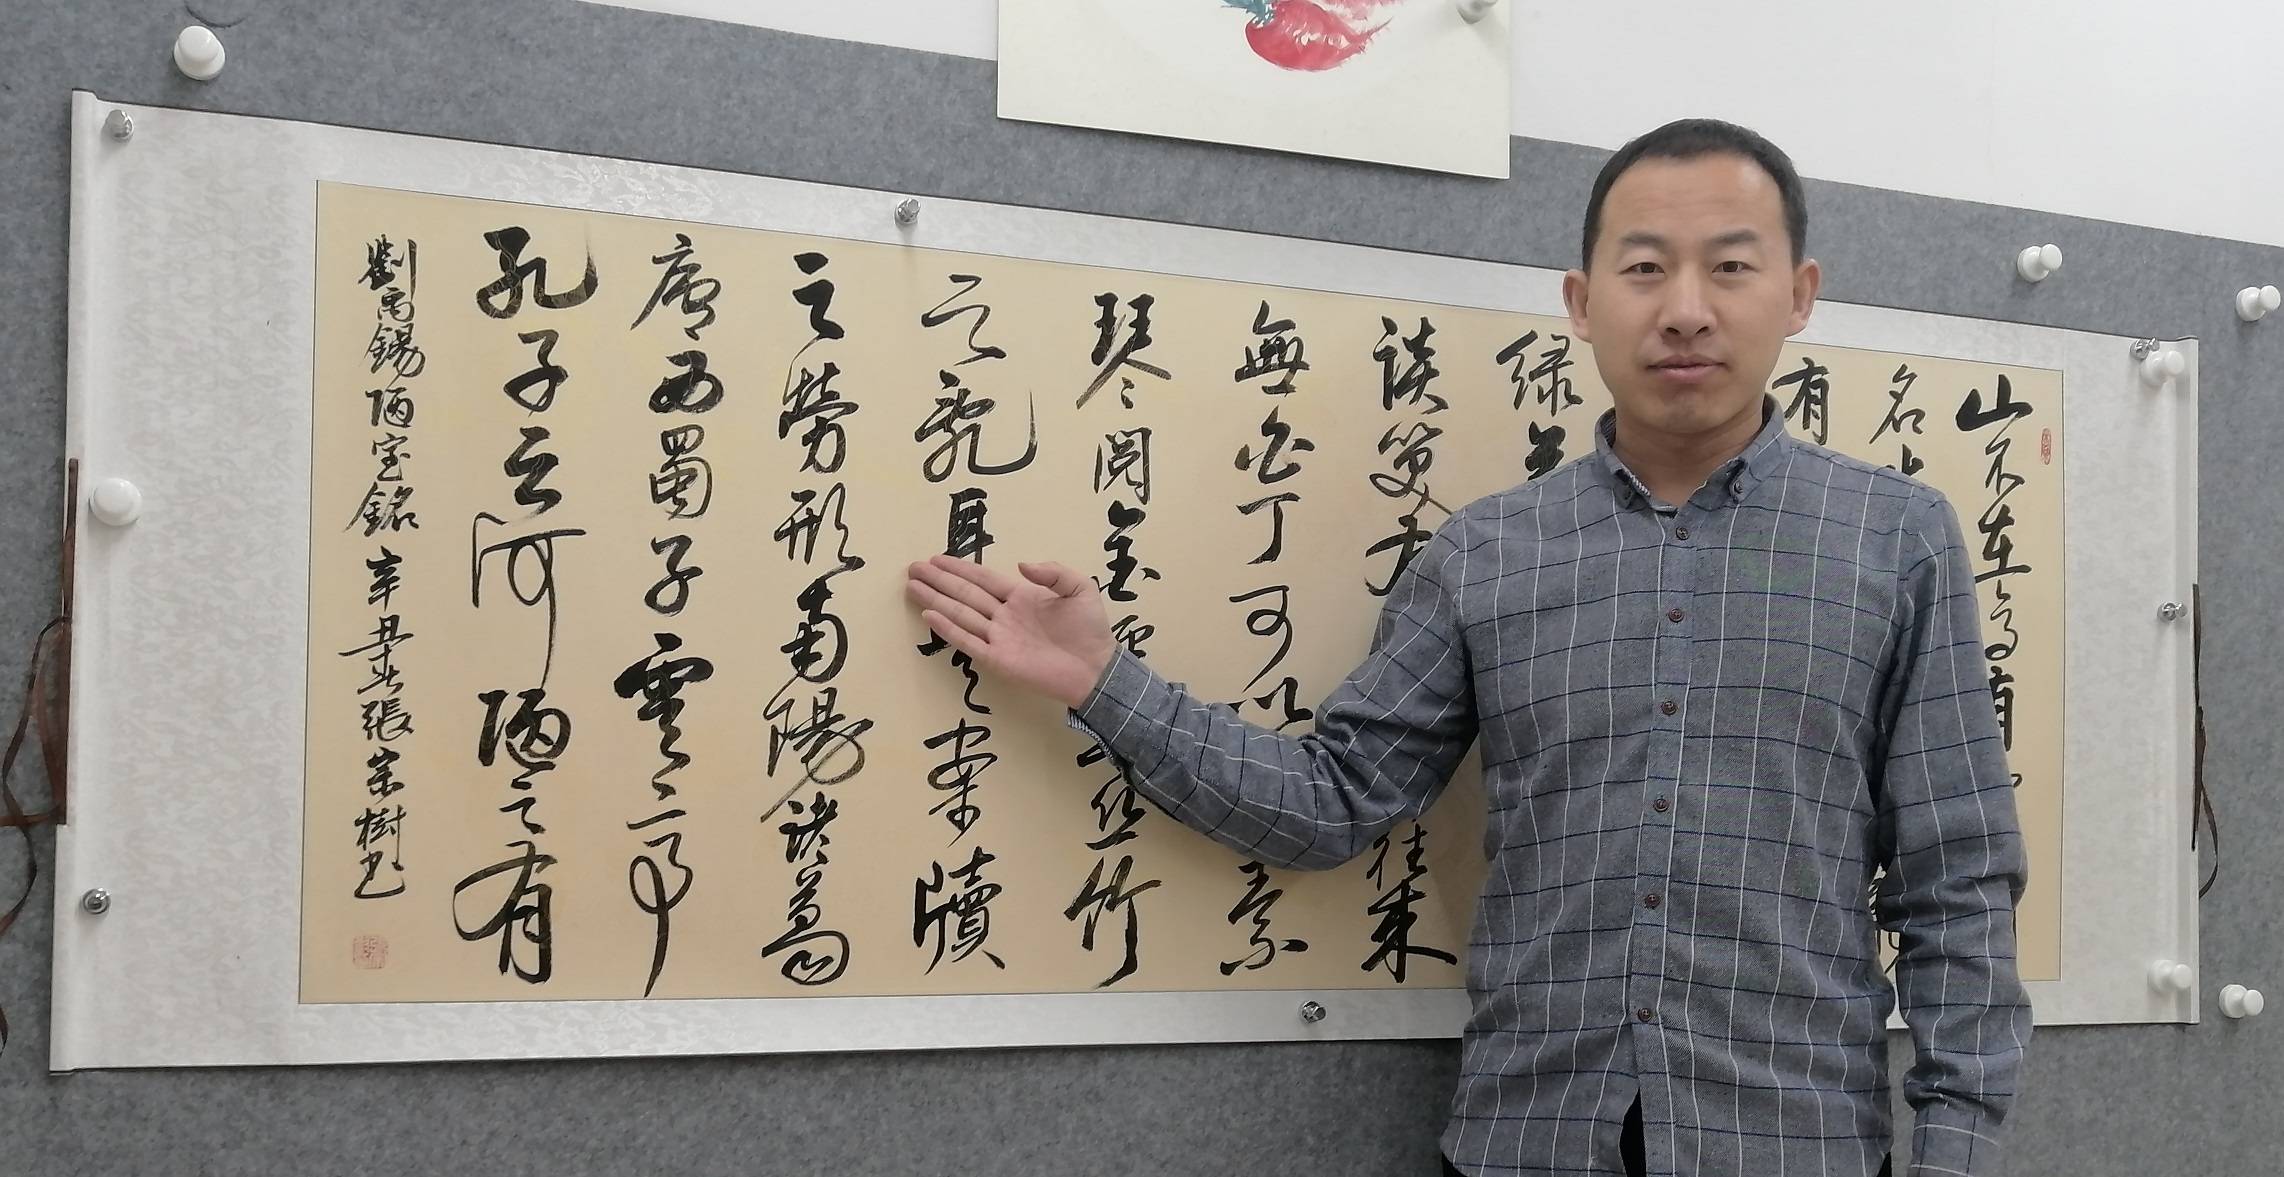 山不在高有
名
有
绿
談笑有 往来
無白丁可以 素
琴閲金 丝竹
之亂耳 案牘
之勞形南陽諸葛
廬西蜀子雲亭
孔子云何陋之有
劉禹錫陋室銘 辛丑春張宗樹书